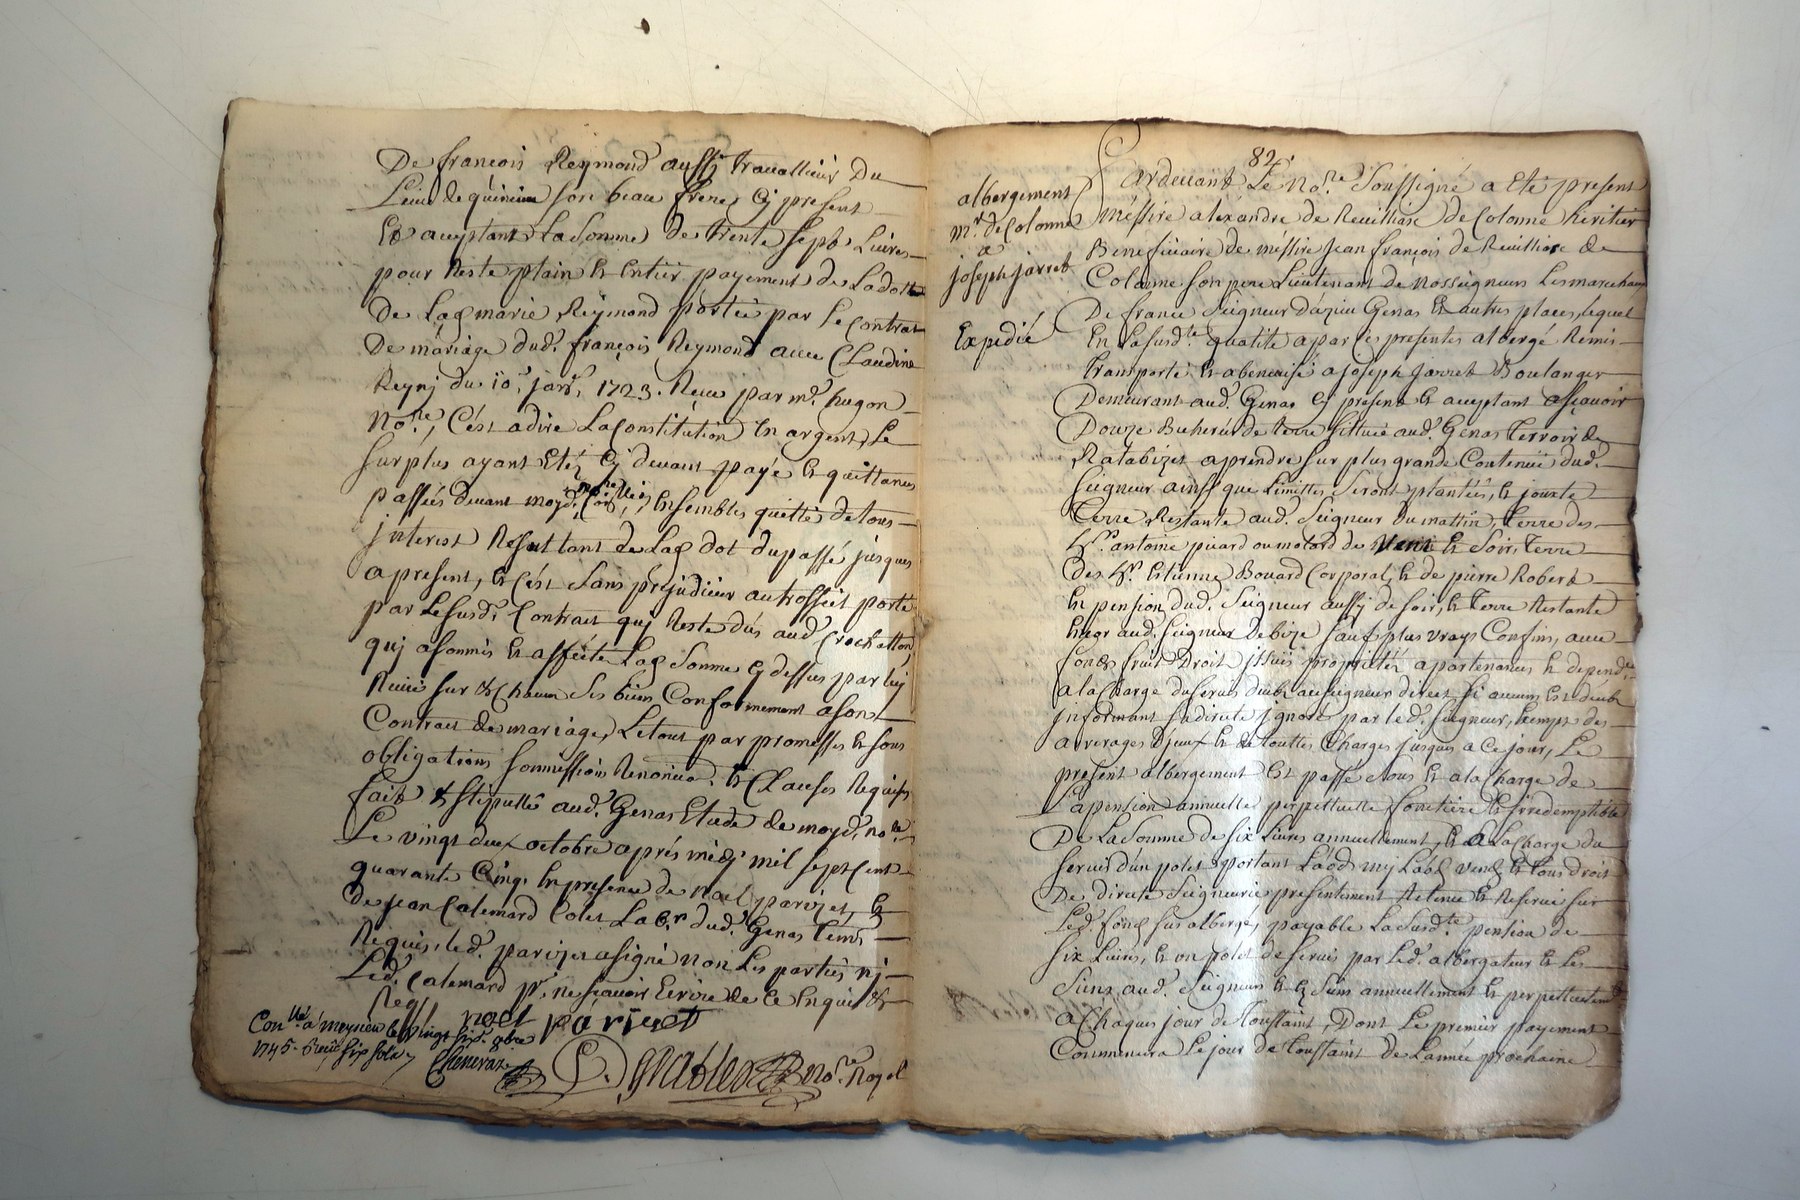 De françois Reymond aussy travallieur Du
Lieu de quincieu son beau frere Cy present
Et acceptant La Somme de trente sept Livres
pour Reste plain et Entier payement de La dotte
De Lad marie Reymond portée par le Contrat
De mariage dud. françois Reymond avec Claudine
Reynj du 10e. janr. 1723. Receu par me. hugon
Nore., C'est a dire La Constitution En argent, Le
surplus ayant Eté Cy devant payé et quittances
passées devant moyd. Nore, Ensembles quitte de tous
jnterest Resultant de Lad dot du passé jusques
a present, et C'est sans préjudice au trossel porté
par Lesusd. Contrat quj Reste dûs aud Crochatton
quj a soumis et affecté Lad Somme Cy dessus par luy
Receüe sur et Chacun ses biens Conformement a son
Contrait de mariage, Le tout par promesses et sous
obligations soumissions Renonciaõ. et Clauses Requises
fait et stipullé aud. Genas Etude de moyd. nore
Le vingt deux octobre aprés midy mil sept Cent
quarante Cinq, En presence de noel parizet, et
De jean Catemard Colet Labr. dud. Genas tems
Requis, led. parizet a signé non Les parties nj
Led. Catemard pr. ne sçavoir Ecrire de Ce Enquis et
Reqs. noel pariset
Conllé a meyzieu le vingt six. 8bre
1745. Receu six sols
Chenevaz
Nore. Royal
82.
albergement
Mr. de Colonne
a
joseph jarret
Expedié
Pardevant Le Nore. Soussigné a Eté present
méssire aléxandre de Reuilliase de Colonne heritier
Beneficiaire de méssire Jean françois de Reuilliase de
Colonne son pere Lieutenant de Nosseigneurs Les marechaux
De france Seigneur d'azieu Genas et autres places, lequel
En La susd.te qualité a par Ces presentes albergé Remis
transporté et abenevisé a joseph jarret Boulanger
Demeurant aud. Genas Cy present et acceptant asçavoir
Douze Bicherées de terre scittuée aud. Genas terroir de
Ratabizet a prendre sur plus grande Contenüe dud.
seigneur ainsy que Limittes seront plantées, et jouxte
Terre Restante aud. Seigneur du mattin, terre des
hrs. antoine picard ou motard de vent et Soir, terre
des hrs. Etienne Bouard Corporal, et de pierre Robert
En pension dud. Seigneur aussy de soir, et terre Restante
Encor aud. seigneur de bize sauf plus vrays Confins, avec
fonds fruit Droit jssües proprietéz apartenances et depend.ces
a la Charge du servis deub au seigneur direct si aucun Est deub
jnformant sa directe jgnoré par led. seigneur, Exempt des
arrerages D'jceux et de touttes Charges jusques a Ce jour, Le
present albergement Est passé sous et a la Charge de
La pension annuelle perpettuelle fonciere et jrredemptible
De La Somme de six Livres annuellement, et a La Charge du
servis d'un polet portant Laod mj Laod vend et tous droit
De directe Seigneurie presentement Retenüe et Reservée sur
Led. fond sus albergé, payable La susd.te pension de
six Livres, et un polet de servis par Led. albergataire et Les
Siens aud. Seigneur et és Siens annuellement et perpettuellemt
a Chaque jour de toussaint, Dont Le premier payement
Commencera Le jour de toussaint de L'année prochaine